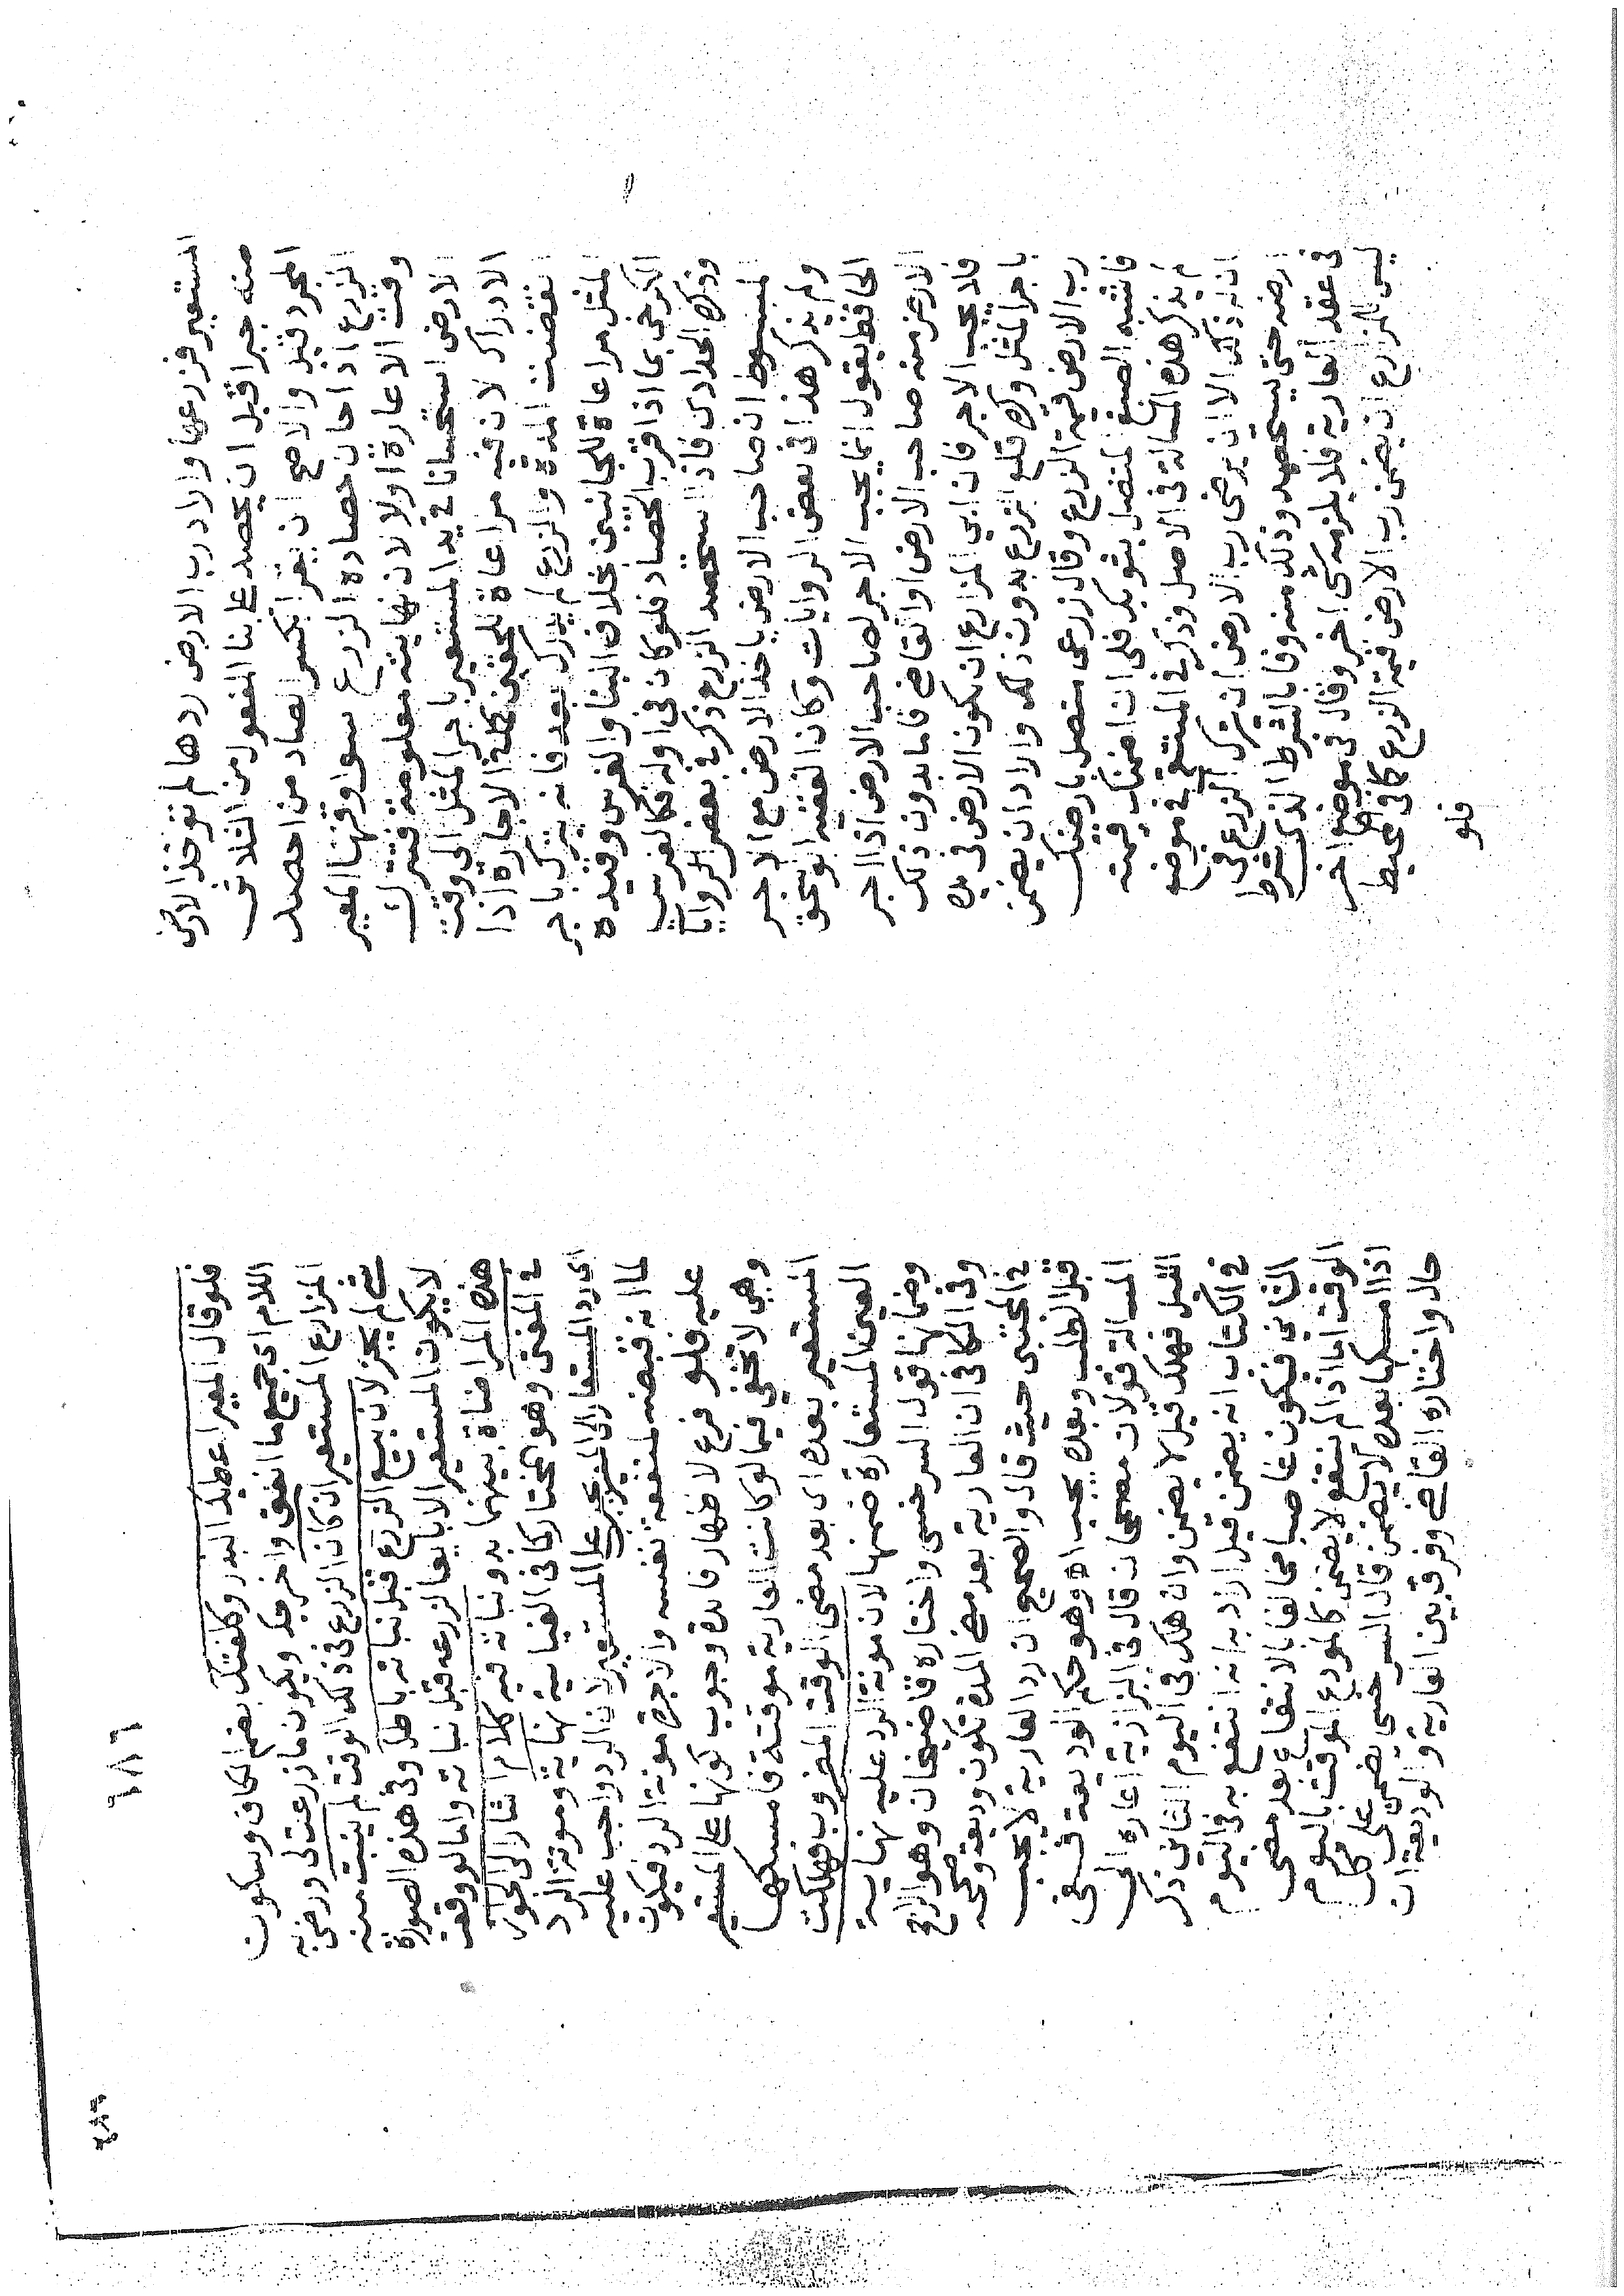 المستعير فزرعها واراد رب الارض ردها لم تؤخذ الارض
منه جبرا قبل ان يحصد على بنا المفعول من الثلاثى
المجرد قيل والاصح ان يقرا بكسر الصاد من احصد
الزرع اذا حان حصاده الزرع سوا وقتها المعير
وقت الاعارة اولا لان نهايته معلومة فتترك
الارض استحسانا في يد المستعير باجر المثل الى وقت
الادراك لان فيه مراعاة للحقين كما في الاجارة اذا
انقضت المدة والزرع لم يدرك بعد فانه يترك باجر
المثل مراعاة للجانبين بخلاف البنا والغرس وقيده
الكرخى بما اذا قرب الحصاد فلو كان في اوله فكالغرس
وذكر الحدادى فاذا استحصد الزرع ذكر في بعض الروايات
المبسوط ان صاحب الارض ياخذ الارض مع الاجر
ولم يذكر هذا في بعض الروايات وكان الفقيه ابو اسحق
الحافظ يقول انما يجب الاجر لصاحب الارض اذا اجر
الارض منه صاحب الارض او القاضي فاما بدون ذلك
فلا يجب الاجر فان ابي المزارع ان تكون الارض في يده
باجر المثل وكره قلع الزرع بدون ذلك واراد ان يضمن
رب الارض قيمة الزرع وقال زرعى متصل بارضك
فاشبه الصبغ المتصل بثوبك فلى ان اضمنك قيمته
لم يذكر هذه المسالة في الاصل وذكر في المنتقى في موضع
ان له ذلك الا ان يرضى رب الارض ان يترك الزرع في
ارضه حتى يستحصد وذلك منه وفا بالشرط الذى شرط
في عقد العارية فلا يلزمه شى اخر وقال في موضع اخر
ليس للزارع ان يضمن رب الارض قيمة الزرع كما في المحيط
فلو
٦٨٦
فلو قال المعير اعطيك البذر وكلفتك بضم الكاف وسكون
اللام اى جميع ما انفق واخرجك ويكون ما زرعت لى ورضى به
المزارع المستعير ان كان الزرع في ذلك الوقت لم ينبت منه
شى لم يجز لان بيع الزرع قبل نباته باطل وفي هذه الصورة
لا يكون المستعير الا بايعا لزرعه قبل نباته واما لو وقعت
هذه المراضاة بينهما بدو نباته فيه كلام اشار الى الجواز
في المغنى وهو المختار كما في الغياثية نهاية ومونة الرد
اى رد المستعار الى المعير تجب على المستعير لان الرد واجب عليه
لما انه قبضه لمنفعة نفسه والاجرة مونة الرد فيكون
عليه فلو فرع لاظهار فايدة وجوب كونها على المستعير
وهى لا تخفى فيما لو كانت العارية موقتة فامسكها
المستعير بعده اى بعد مضى الوقت المضروب فهلكت
العين المستعارة ضمنها لان مونة الرد عليه نهاية
وضمانها قول السرخسى واختاره قاضيخان وهو الراجح
وفى الكافى ان العارية بعد مضى المدة تكون وديعة وصححه
في المجتبى حيث قال والصحيح ان رد العارية لا يجب
قبل الطلب وبعده يجب اه وهو حكم الوديعة ففى
المسالة قولان مصححان قال في البزازية اعاره الى
الليل فهلك قيل لا يضمن وان هلك في اليوم الثانى ذكر
في الكتاب انه يضمن قيل اراد به انه انتفع به في اليوم
الثانى فيكون غاصبا مخالفا بالانتفاع بعد مضى
الوقت اما اذا لم ينتفع لا يضمن كالمودع الموقت باليوم
اذا امسكها بعده لا يضمن قال السرخسى يضمن على كل
حال واختاره القاضى وفرق بين العارية والوديعة ان